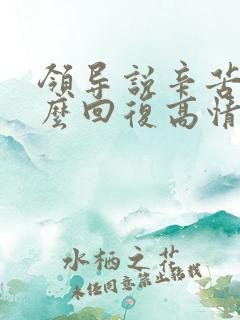 領导說辛苦
麼回復高情
水栖之花
未经同意禁止转载